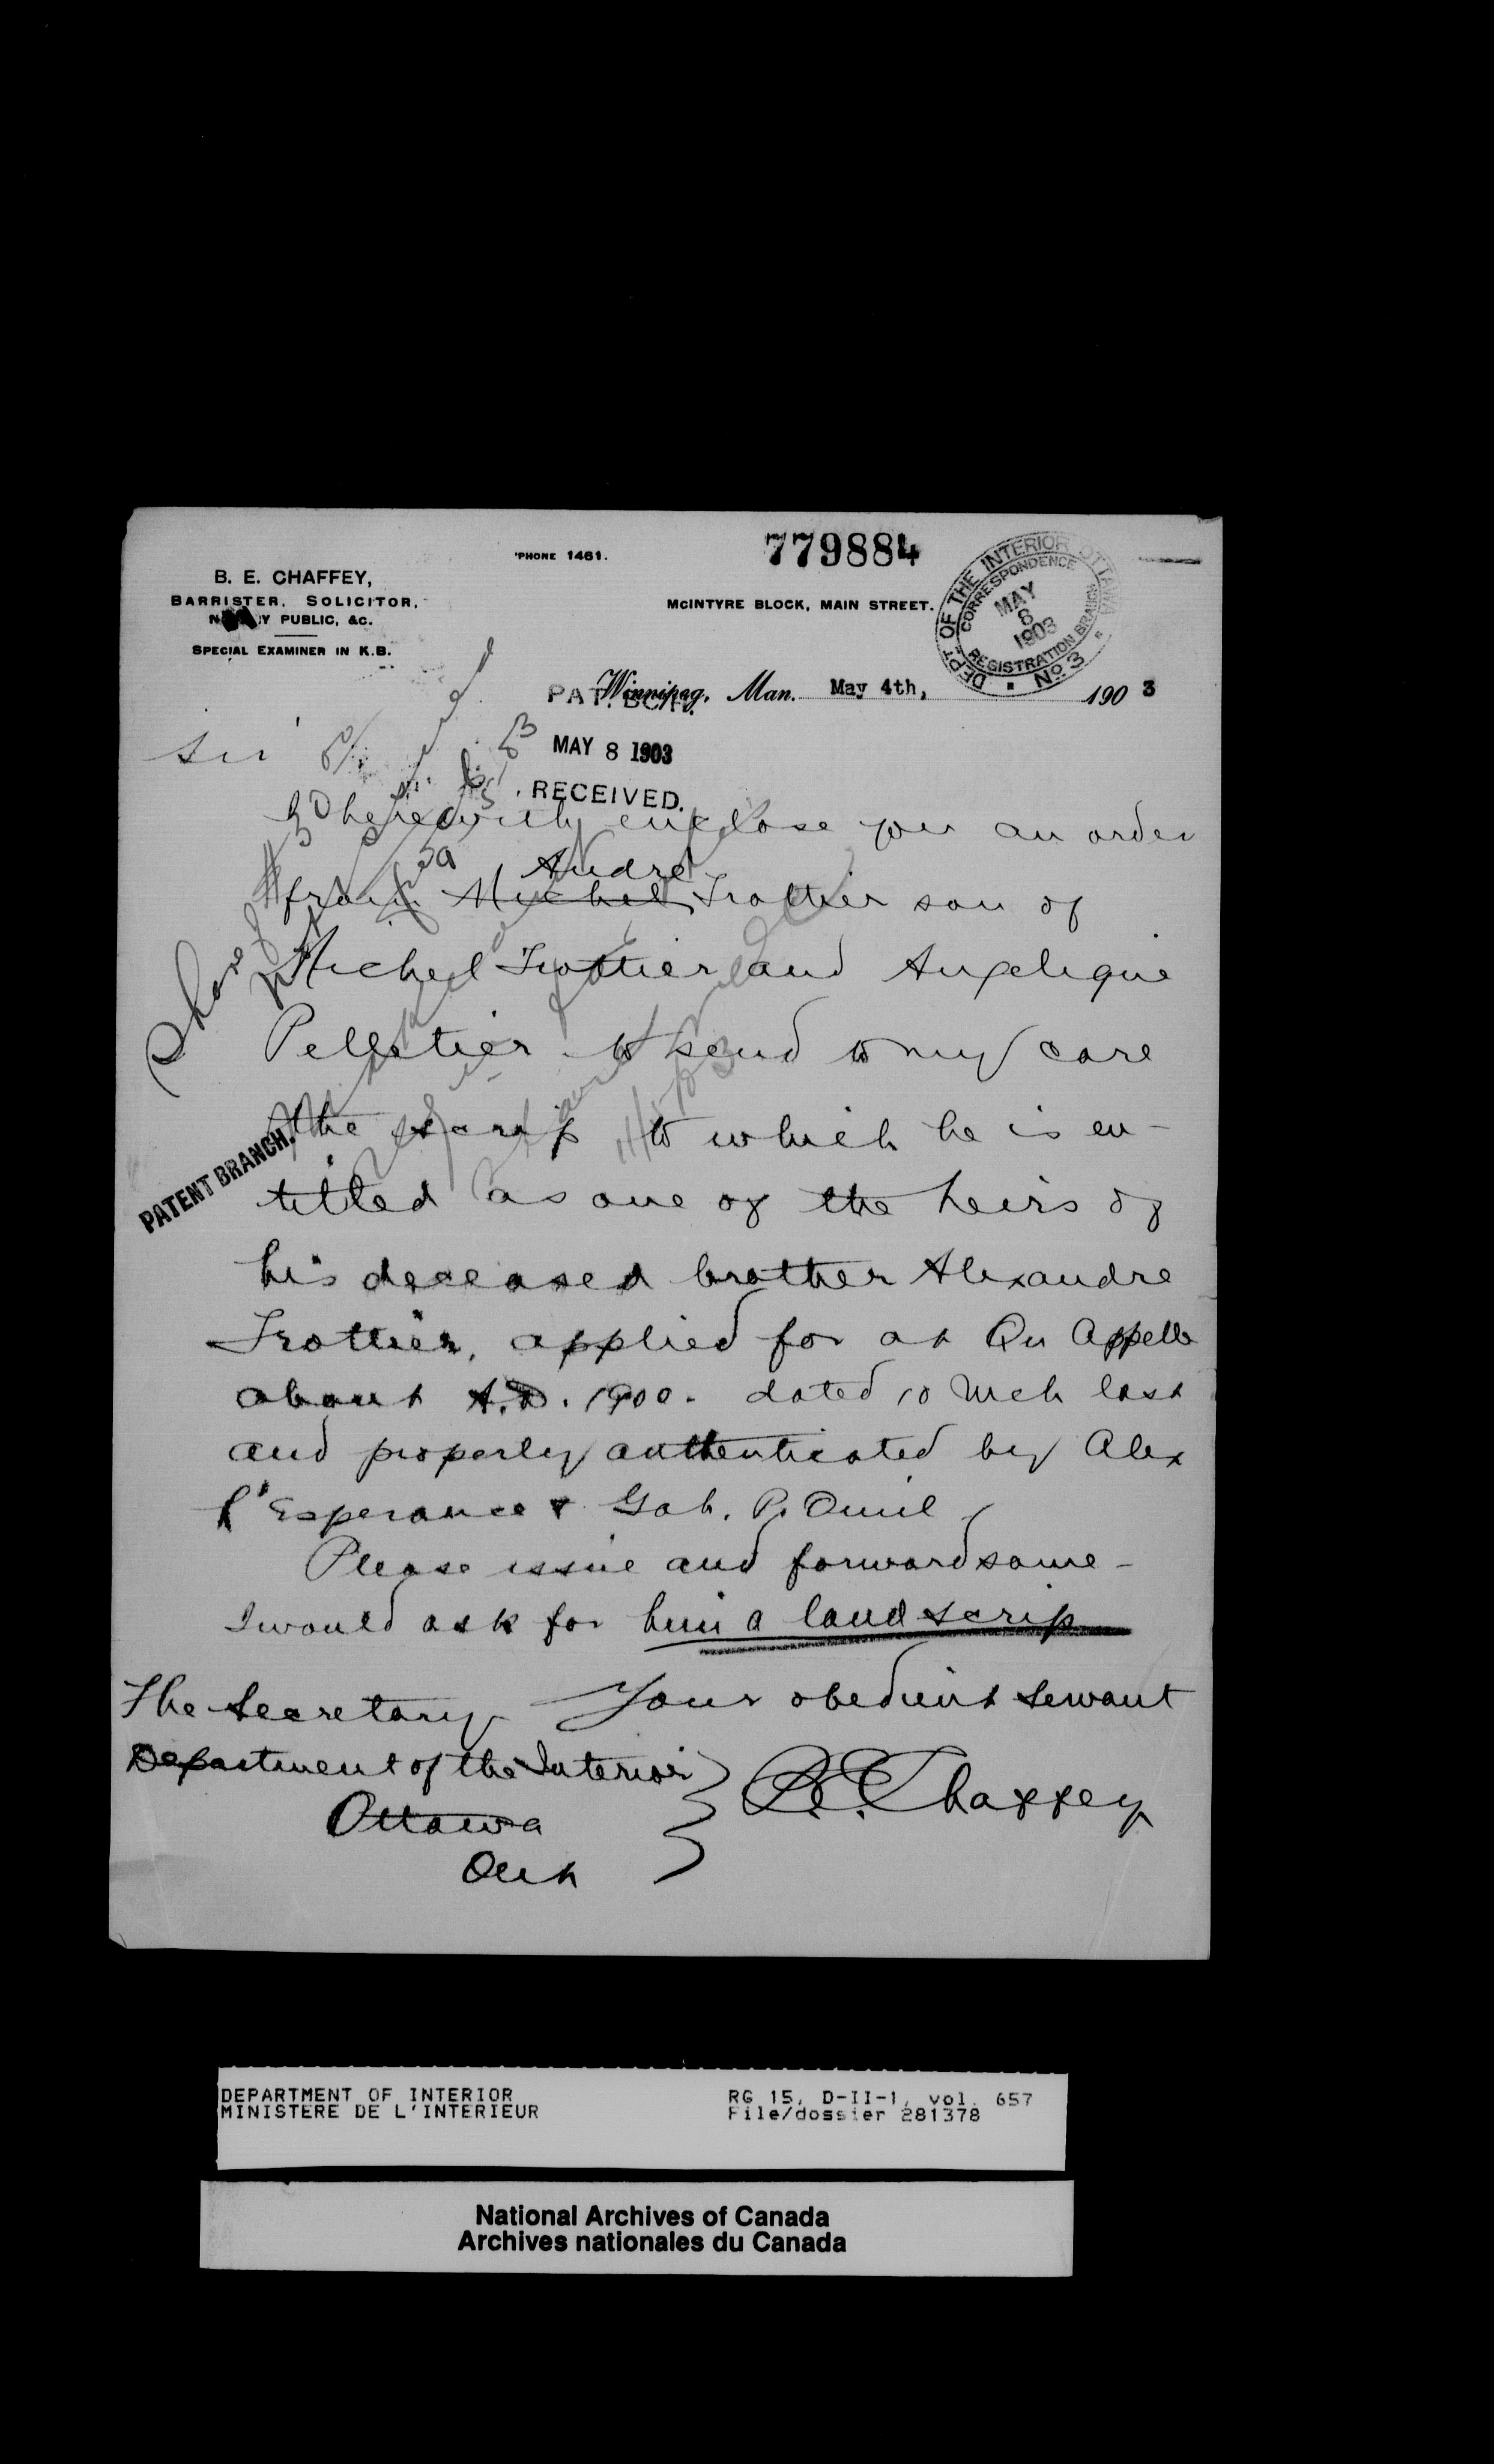 779884
'PHONE 1461.
B. E. CHAFFEY,
BARRISTER, SOLICITOR,
PUBLIC, &C.
SPECIAL EXAMINER IN K.B.
MCINTYRE BLOCK, MAIN STREET.
DEPT. OF THE INTERIOR OTTAWA
CORRESPONDENCE
MAY
8
1903
REGISTRATION BRANCH
No. 3
Winnipeg, Man. May 4th, 1903
MAY 8 1903
RECEIVED.
Sir
I herewith enclose you an order
Andre
from Michel Trottier son of
Michel Trottier and Angelique
Pelletier to send to my care
the scrip to which he is en-
titled as one of the heirs of
PATENT BRANCH.
his deceased brother Alexandre
Trottier, applied for at Qu Appelle
about A.D. 1900. dated 10 Mch last
and properly authenticated by Alex
l'Esperance & Gab.
Please issue and forward same -
I would ask for him a land scrip
Your obedient servant
B.E. Chaffey
The Secretary
Department of the Interior
Ottawa
Ont
DEPARTMENT OF INTERIOR
MINISTERE DE L'INTERIEUR
RG 15, D-II-1, vol. 657
File/dossier 281378
National Archives of Canada
Archives nationales du Canada